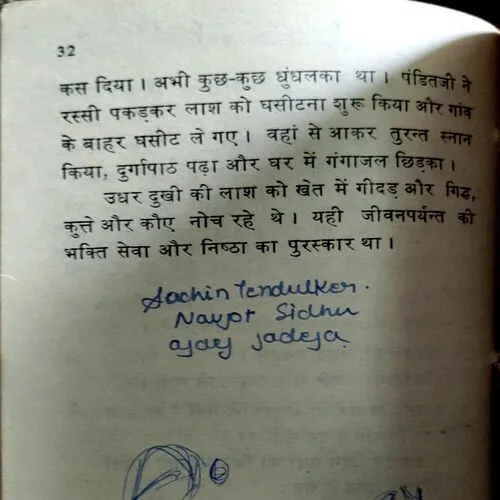 32
कस दिया । अभी कुछ-कुछ धुंधलका था । पंडितजी ने
रस्सी पकड़कर लाश को घसीटना शुरू किया और गांव
के बाहर घसीट ले गए । वहां से आकर तुरन्त स्नान
किया, दुर्गापाठ पढ़ा और घर में गंगाजल छिड़का ।
उधर दुखी की लाश को खेत में गीदड़ और गिद्ध,
कुत्ते और कौए नोच रहे थे । यही जीवनपर्यन्त की
भक्ति सेवा और निष्ठा का पुरस्कार था ।
Sachin Tendulker.
Navjot Sidhu
ajay jadeja.